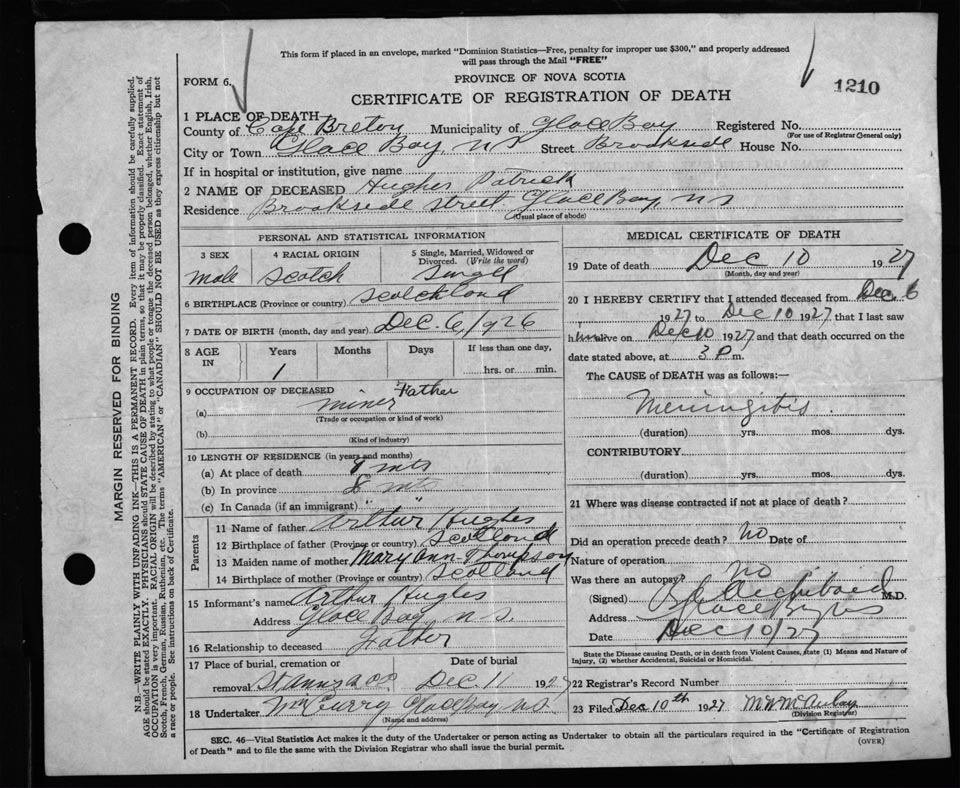 This form if placed in an envelope, marked "Dominion Statistics—Free, penalty for improper use $300," and properly addressed
will pass through the Mail "FREE"
FORM 6.
PROVINCE OF NOVA SCOTIA
CERTIFICATE OF REGISTRATION OF DEATH
1210
1 PLACE OF DEATH
County of Cape Breton Municipality of Glace Bay Registered No.
(For use of Registrar General only)
City or Town Glace Bay, N S Street Brookside House No.
If in hospital or institution, give name
2 NAME OF DECEASED Hughes Patrick
Residence Brookside Street Glace Bay N S
(Usual place of abode)
PERSONAL AND STATISTICAL INFORMATION
3 SEX 4 RACIAL ORIGIN 5 Single, Married, Widowed or Divorced. (Write the word)
Male Scotch Singel
6 BIRTHPLACE (Province or country) Scotchland
7 DATE OF BIRTH (month, day and year) Dec. 6/1926
8 AGE IN Years Months Days If less than one day,
1 hrs. or min.
9 OCCUPATION OF DECEASED Father
(a) miner
(Trade or occupation or kind of work)
(b)
(Kind of industry)
10 LENGTH OF RESIDENCE (in years and months)
(a) At place of death 8 mts
(b) In province 8 mts
(c) In Canada (if an immigrant) " "
Parents
11 Name of father Arthur Hughes
12 Birthplace of father (Province or country) Scotland
13 Maiden name of mother Mary Ann Thompson
14 Birthplace of mother (Province or country) Scotland
15 Informant's name Arthur Hughes
Address Glace Bay, N S.
16 Relationship to deceased Father
17 Place of burial, cremation or Date of burial
removal St Anns Dec 11 1927
18 Undertaker McCurry Glace Bay N S
(Name and address)
MEDICAL CERTIFICATE OF DEATH
19 Date of death Dec 10 1927
(Month, day and year)
20 I HEREBY CERTIFY that I attended deceased from Dec. 6
1927 to Dec 10 1927 that I last saw
him alive on Dec 10 1927 and that death occurred on the
date stated above, at 3 P m.
The CAUSE of DEATH was as follows:—
Meningitis
(duration) yrs. mos. dys.
CONTRIBUTORY
(duration) yrs. mos. dys.
21 Where was disease contracted if not at place of death?
Did an operation precede death? No Date of
Nature of operation
Was there an autopsy? no
(Signed) Archibald M.D.
Address Glace Bay NS
Date Dec 10/27
State the Disease causing Death, or in death from Violent Causes, state (1) Means and Nature of
Injury, (2) whether Accidental, Suicidal or Homicidal.
22 Registrar's Record Number
23 Filed Dec 10th 1927 McAulay
(Division Registrar)
SEC. 46—Vital Statistics Act makes it the duty of the Undertaker or person acting as Undertaker to obtain all the particulars required in the "Certificate of Registration
of Death" and to file the same with the Division Registrar who shall issue the burial permit. (OVER)
MARGIN RESERVED FOR BINDING
N.B.—WRITE PLAINLY WITH UNFADING INK—THIS IS A PERMANENT RECORD. Every item of information should be carefully supplied.
AGE should be stated EXACTLY. PHYSICIANS should STATE CAUSE OF DEATH in plain terms, so that it may be properly classified. Exact statement of
OCCUPATION is very important. RACIAL ORIGIN will be described by stating to what people or tongue the deceased person belonged, whether English, Irish,
Scotch, French, German, Russian, Ruthenian, etc. The terms "AMERICAN" or "CANADIAN" SHOULD NOT BE USED as they express citizenship but not
a race or people. See instructions on back of Certificate.